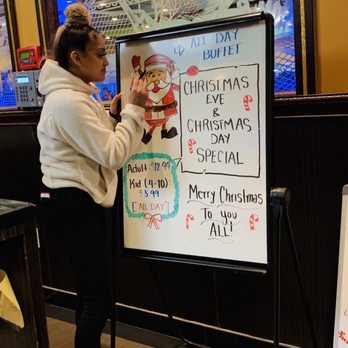 ALL DAY
BUFFET
CHRISTMAS
EVE
&
CHRISTMAS
DAY
SPECIAL
Adult $12.99
Kid (4-10)
$5.99
[ALL DAY]
Merry Christmas
To you
ALL!